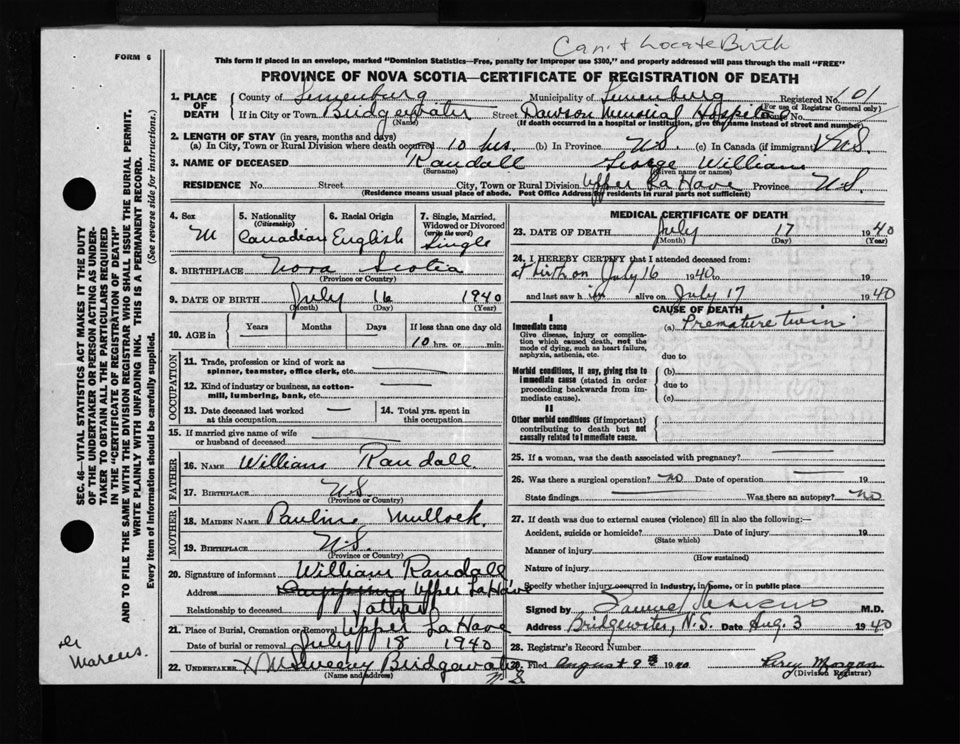 Can't Locate Birth
FORM 6
This form if placed in an envelope, marked "Dominion Statistics—Free, penalty for improper use $300," and properly addressed will pass through the mail "FREE"
PROVINCE OF NOVA SCOTIA—CERTIFICATE OF REGISTRATION OF DEATH
1. PLACE OF DEATH County of Lunenburg Municipality of Lunenburg Registered No. 101
(For use of Registrar General only)
If in City or Town Bridgewater Street Dawson Memorial Hospital House No.
(Name) (If death occurred in a hospital or institution, give the name instead of street and number)
2. LENGTH OF STAY (in years, months and days)
(a) In City, Town or Rural Division where death occurred 10 hrs. (b) In Province N.S. (c) In Canada (if immigrant)
3. NAME OF DECEASED Randall George William
(Surname) (Given name or names)
RESIDENCE No. Street City, Town or Rural Division Upper La Have Province N.S.
(Residence means usual place of abode. Post Office Address by residents in rural parts not sufficient)
4. Sex M
5. Nationality (Citizenship) Canadian
6. Racial Origin English
7. Single, Married, Widowed or Divorced (write the word) Single
8. BIRTHPLACE Nova Scotia
(Province or Country)
9. DATE OF BIRTH July 16 1940
(Month) (Day) (Year)
10. AGE in Years Months Days If less than one day old
10 hrs. or min.
OCCUPATION
11. Trade, profession or kind of work as spinner, teamster, office clerk, etc.
12. Kind of industry or business, as cotton-mill, lumbering, bank, etc.
13. Date deceased last worked at this occupation
14. Total yrs. spent in this occupation
15. If married give name of wife or husband of deceased
FATHER
16. NAME William Randall
17. BIRTHPLACE N.S
(Province or Country)
MOTHER
18. MAIDEN NAME Pauline Mullock
19. BIRTHPLACE N.S.
(Province or Country)
20. Signature of informant William Randall
Address Upper La Have
Relationship to deceased father
21. Place of Burial, Cremation or Removal Upper La Have
Date of burial or removal July 18 1940
22. UNDERTAKER X McSweeny Bridgewater
(Name and address) N.S
MEDICAL CERTIFICATE OF DEATH
23. DATE OF DEATH July 17 1940
(Month) (Day) (Year)
24. I HEREBY CERTIFY that I attended deceased from:
at birth on July 16 1940 to 19
and last saw him alive on July 17 1940
CAUSE OF DEATH
I
Immediate cause (a) Premature twin
Give disease, injury or complication which caused death, not the mode of dying, such as heart failure, asphyxia, asthenia, etc.
due to
Morbid conditions, if any, giving rise to immediate cause (stated in order proceeding backwards from immediate cause)
(b)
due to
(c)
II
Other morbid conditions (if important) contributing to death but not causally related to immediate cause.
25. If a woman, was the death associated with pregnancy?
26. Was there a surgical operation? no Date of operation 19
State findings Was there an autopsy? no
27. If death was due to external causes (violence) fill in also the following:—
Accident, suicide or homicide? Date of injury 19
(State which)
Manner of injury
(How sustained)
Nature of injury
Specify whether injury occurred in industry, in home, or in public place
Signed by Samuel Marcus M.D.
Address Bridgewater, N.S. Date Aug. 3 1940
28. Registrar's Record Number
29. Filed August 9 1940 Percy Morgan
(Division Registrar)
SEC. 46—VITAL STATISTICS ACT MAKES IT THE DUTY
OF THE UNDERTAKER OR PERSON ACTING AS UNDER-
TAKER TO OBTAIN ALL THE PARTICULARS REQUIRED
IN THE "CERTIFICATE OF REGISTRATION OF DEATH"
AND TO FILE THE SAME WITH THE DIVISION REGISTRAR WHO SHALL ISSUE THE BURIAL PERMIT.
WRITE PLAINLY WITH UNFADING INK. THIS IS A PERMANENT RECORD.
Every item of information should be carefully supplied.
(See reverse side for instructions.)
Marcus.